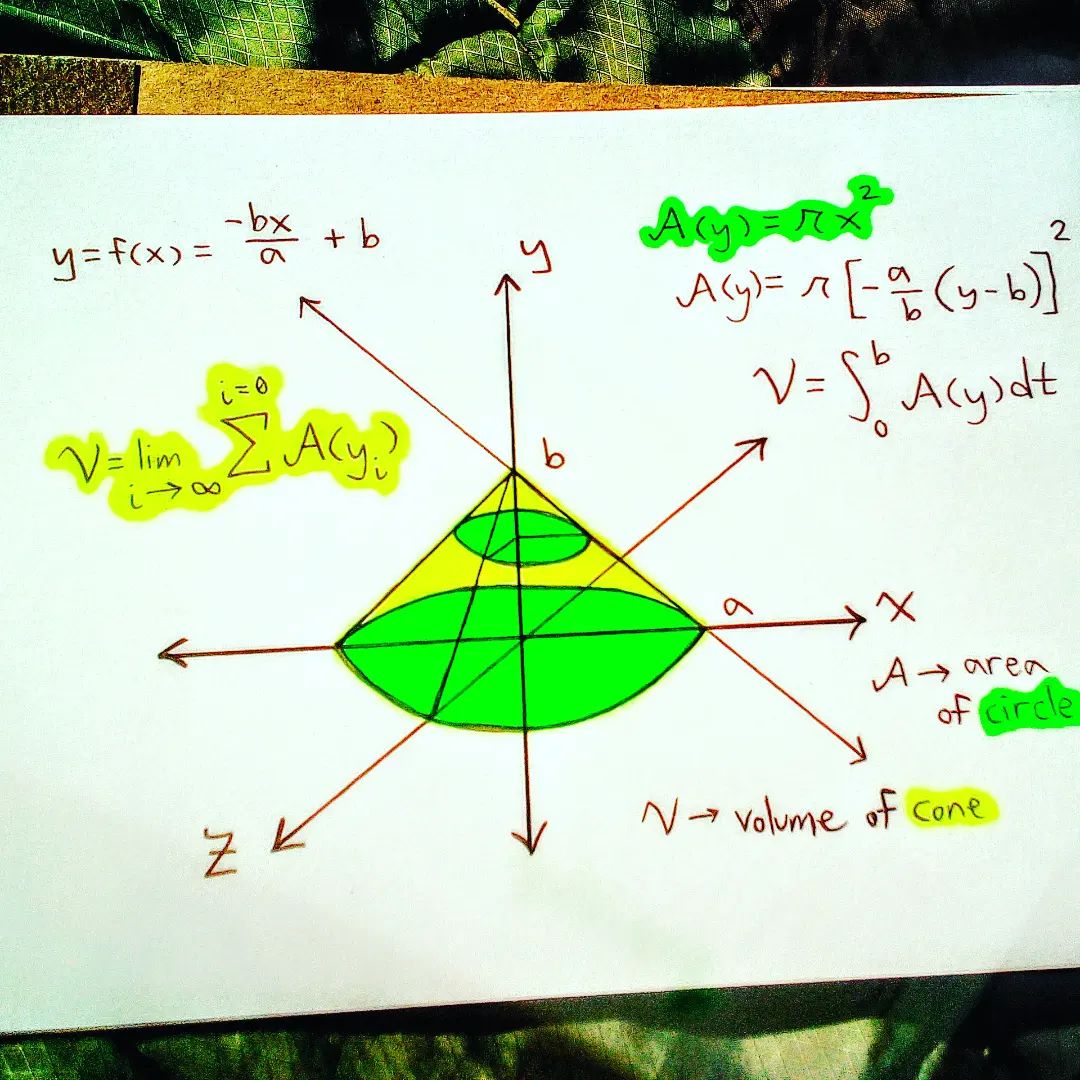 y=f(x)= -bx/a + b
A(y)=πx²
A(y)= π[-a/b(y-b)]²
V= ∫₀ᵇ A(y)dt
i=0
V= lim Σ A(yᵢ)
i→∞
y
b
a
x
z
A→ area
of circle
V→ volume of cone